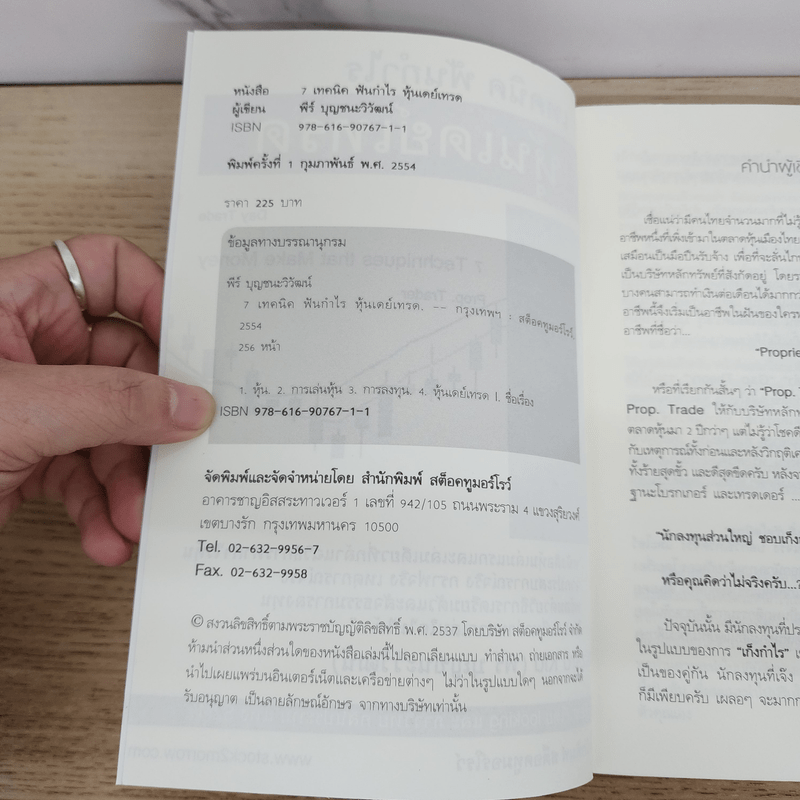 หนังสือ 7 เทคนิค ฟันกำไร หุ้นเดย์เทรด
ผู้เขียน พีร์ บุญชนะวิวัฒน์
ISBN 978-616-90767-1-1
พิมพ์ครั้งที่ 1 กุมภาพันธ์ พ.ศ. 2554
ราคา 225 บาท
ข้อมูลทางบรรณานุกรม
พีร์ บุญชนะวิวัฒน์
7 เทคนิค ฟันกำไร หุ้นเดย์เทรด. -- กรุงเทพฯ : สต็อคทูมอร์โรว์,
2554
256 หน้า
1. หุ้น. 2. การเล่นหุ้น 3. การลงทุน. 4. หุ้นเดย์เทรด I. ชื่อเรื่อง
ISBN 978-616-90767-1-1
จัดพิมพ์และจัดจำหน่ายโดย สำนักพิมพ์ สต็อคทูมอร์โรว์
อาคารชาญอิสสระทาวเวอร์ 1 เลขที่ 942/105 ถนนพระราม 4 แขวงสุริยวงศ์
เขตบางรัก กรุงเทพมหานคร 10500
Tel. 02-632-9956-7
Fax. 02-632-9958
© สงวนลิขสิทธิ์ตามพระราชบัญญัติลิขสิทธิ์ พ.ศ. 2537 โดยบริษัท สต็อคทูมอร์โรว์ จำกัด
ห้ามนำส่วนหนึ่งส่วนใดของหนังสือเล่มนี้ไปลอกเลียนแบบ ทำสำเนา ถ่ายเอกสาร หรือ
นำไปเผยแพร่บนอินเตอร์เน็ตและเครือข่ายต่างๆ ไม่ว่าในรูปแบบใดๆ นอกจากจะได้
รับอนุญาต เป็นลายลักษณ์อักษร จากทางบริษัทเท่านั้น
คำนำผู้เ
เชื่อแน่ว่ามีคนไทยจำนวนมากที่ไม่รู้
อาชีพหนึ่งที่เพิ่งเข้ามาในตลาดหุ้นเมืองไทย
เสมือนเป็นมือปืนรับจ้าง เพื่อที่จะลั่นไก
เป็นบริษัทหลักทรัพย์ที่สังกัดอยู่ โดย
บางคนสามารถทำเงินต่อเดือนได้มากกว
อาชีพนี้จึงเริ่มเป็นอาชีพในฝันของใคร
อาชีพที่ชื่อว่า...
"Proprie
หรือที่เรียกกันสั้นๆ ว่า "Prop.
Prop. Trade ให้กับบริษัทหลัก
ตลาดหุ้นมา 2 ปีกว่าๆ แต่ไม่รู้ว่าโชคดี
กับเหตุการณ์ทั้งก่อนและหลังวิกฤติ
ทั้งร้ายสุดขั้ว และดีสุดขีดครับ หลังจ
ฐานะโบรกเกอร์ และเทรดเดอร์ ...
"นักลงทุนส่วนใหญ่ ชอบเก็ง
หรือคุณคิดว่าไม่จริงครับ...
ปัจจุบันนั้น มีนักลงทุนที่ประ
ในรูปแบบของ "เก็งกำไร" เ
เป็นของคู่กัน นักลงทุนที่เจ๊ง
ก็มีเพียบครับ เผลอๆ จะมากก